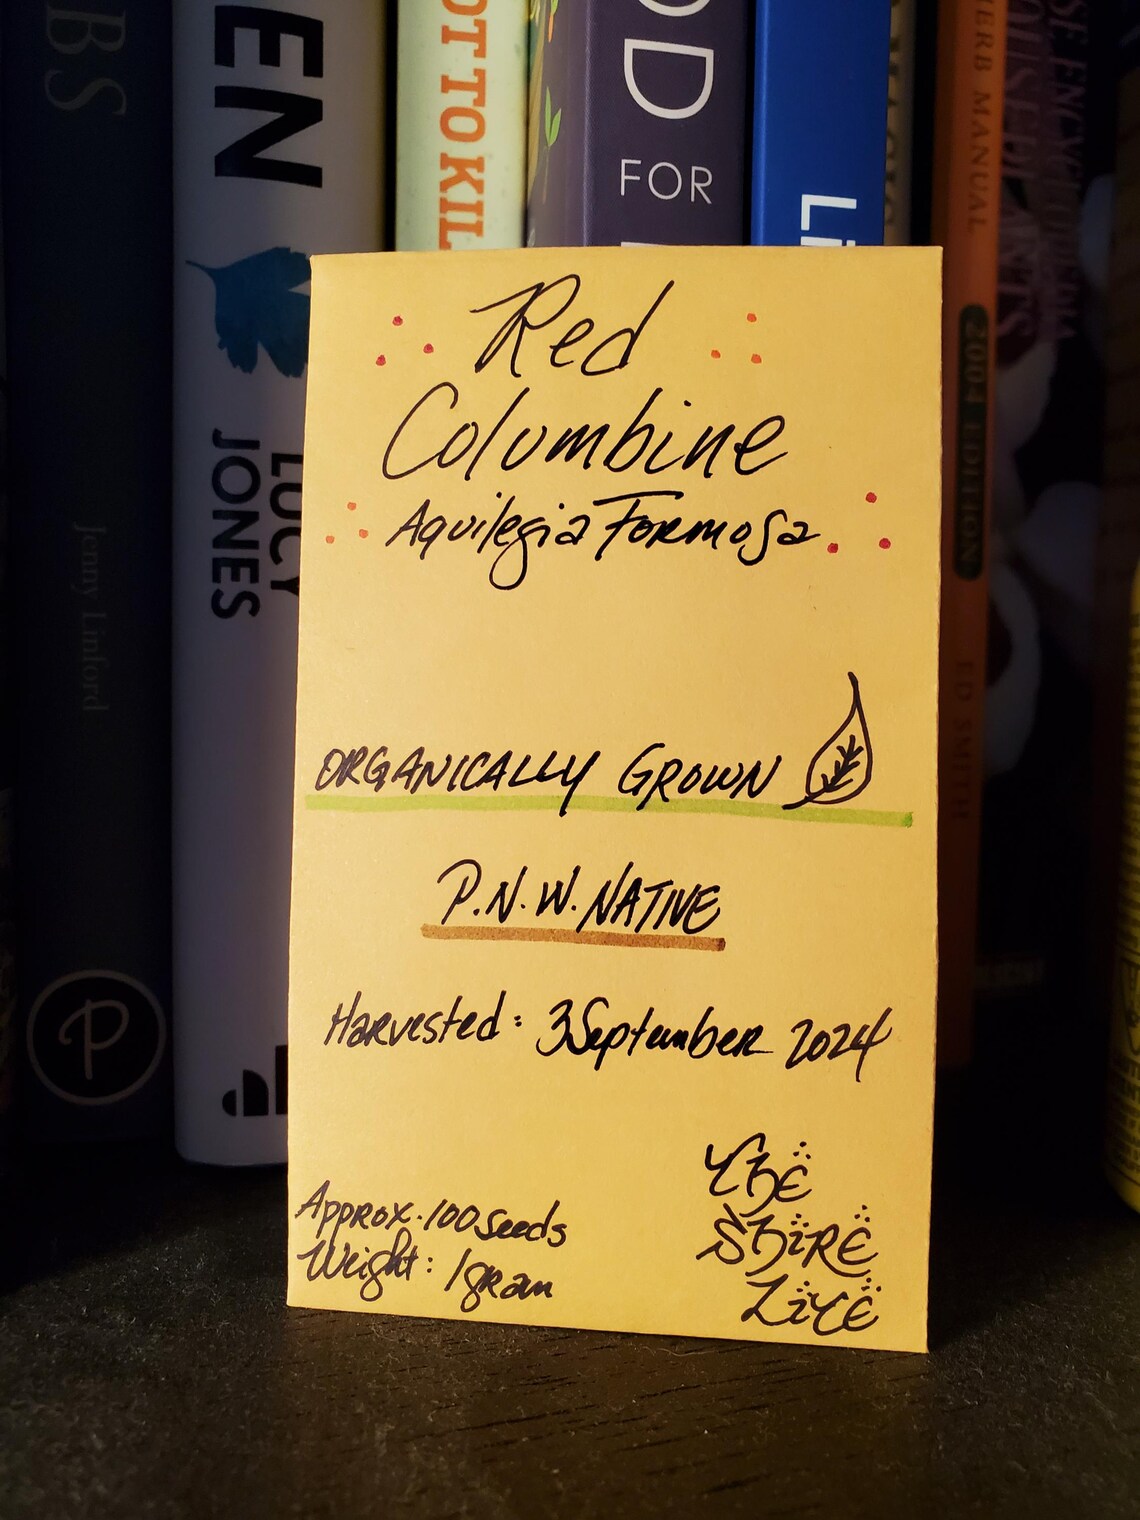 BS
Jenny Linford
P
EN
LUCY
JONES
OT TO KIL
OD
FOR
Li
HERB MANUAL
2004 EDITION
ED SMITH
SE ENCYCLOPEDIA
OUSEPLANTS
Red
Columbine
Aquilegia Formosa
ORGANICALLY GROWN
P.N.W. NATIVE
Harvested: 3 September 2024
Approx. 100 Seeds
Weight: 1 gram
The
Shire
Life